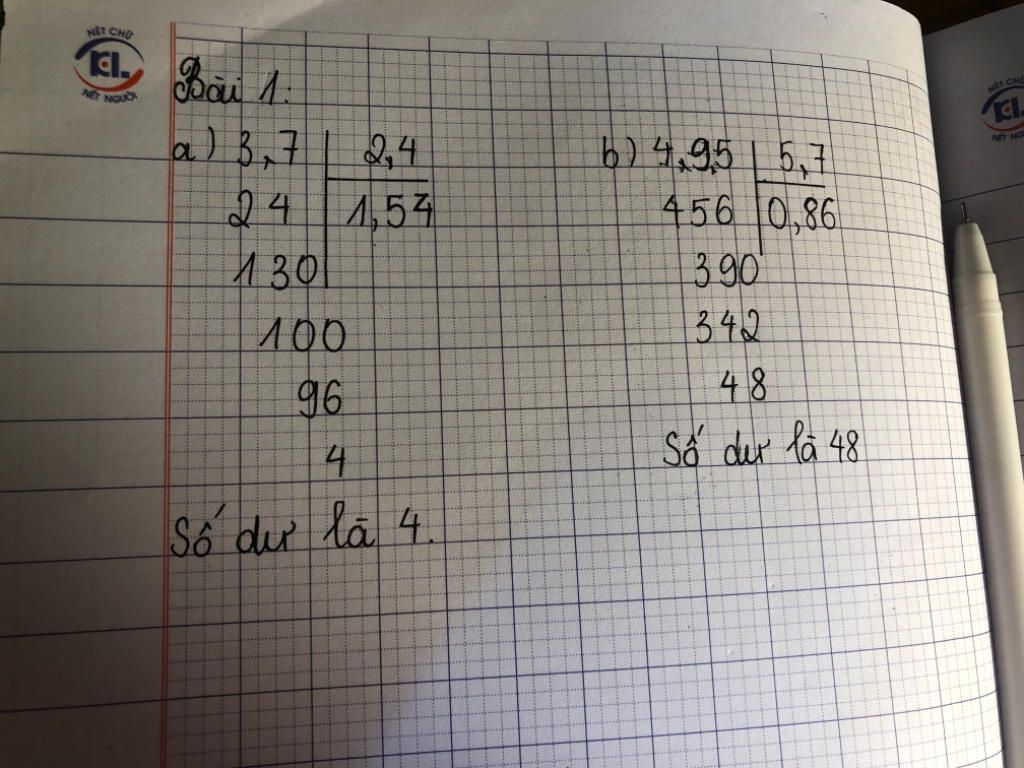 NÉT CHỮ
KL
NÉT NGƯỜI
Bài 1.
a) 3,7 2,4
24 1,54
130
100
96
4
Số dư là 4.
b) 4,9,5 5,7
456 0,86
390
342
48
Số dư là 48
NÉT CHỮ
KL
NÉT NGƯỜI